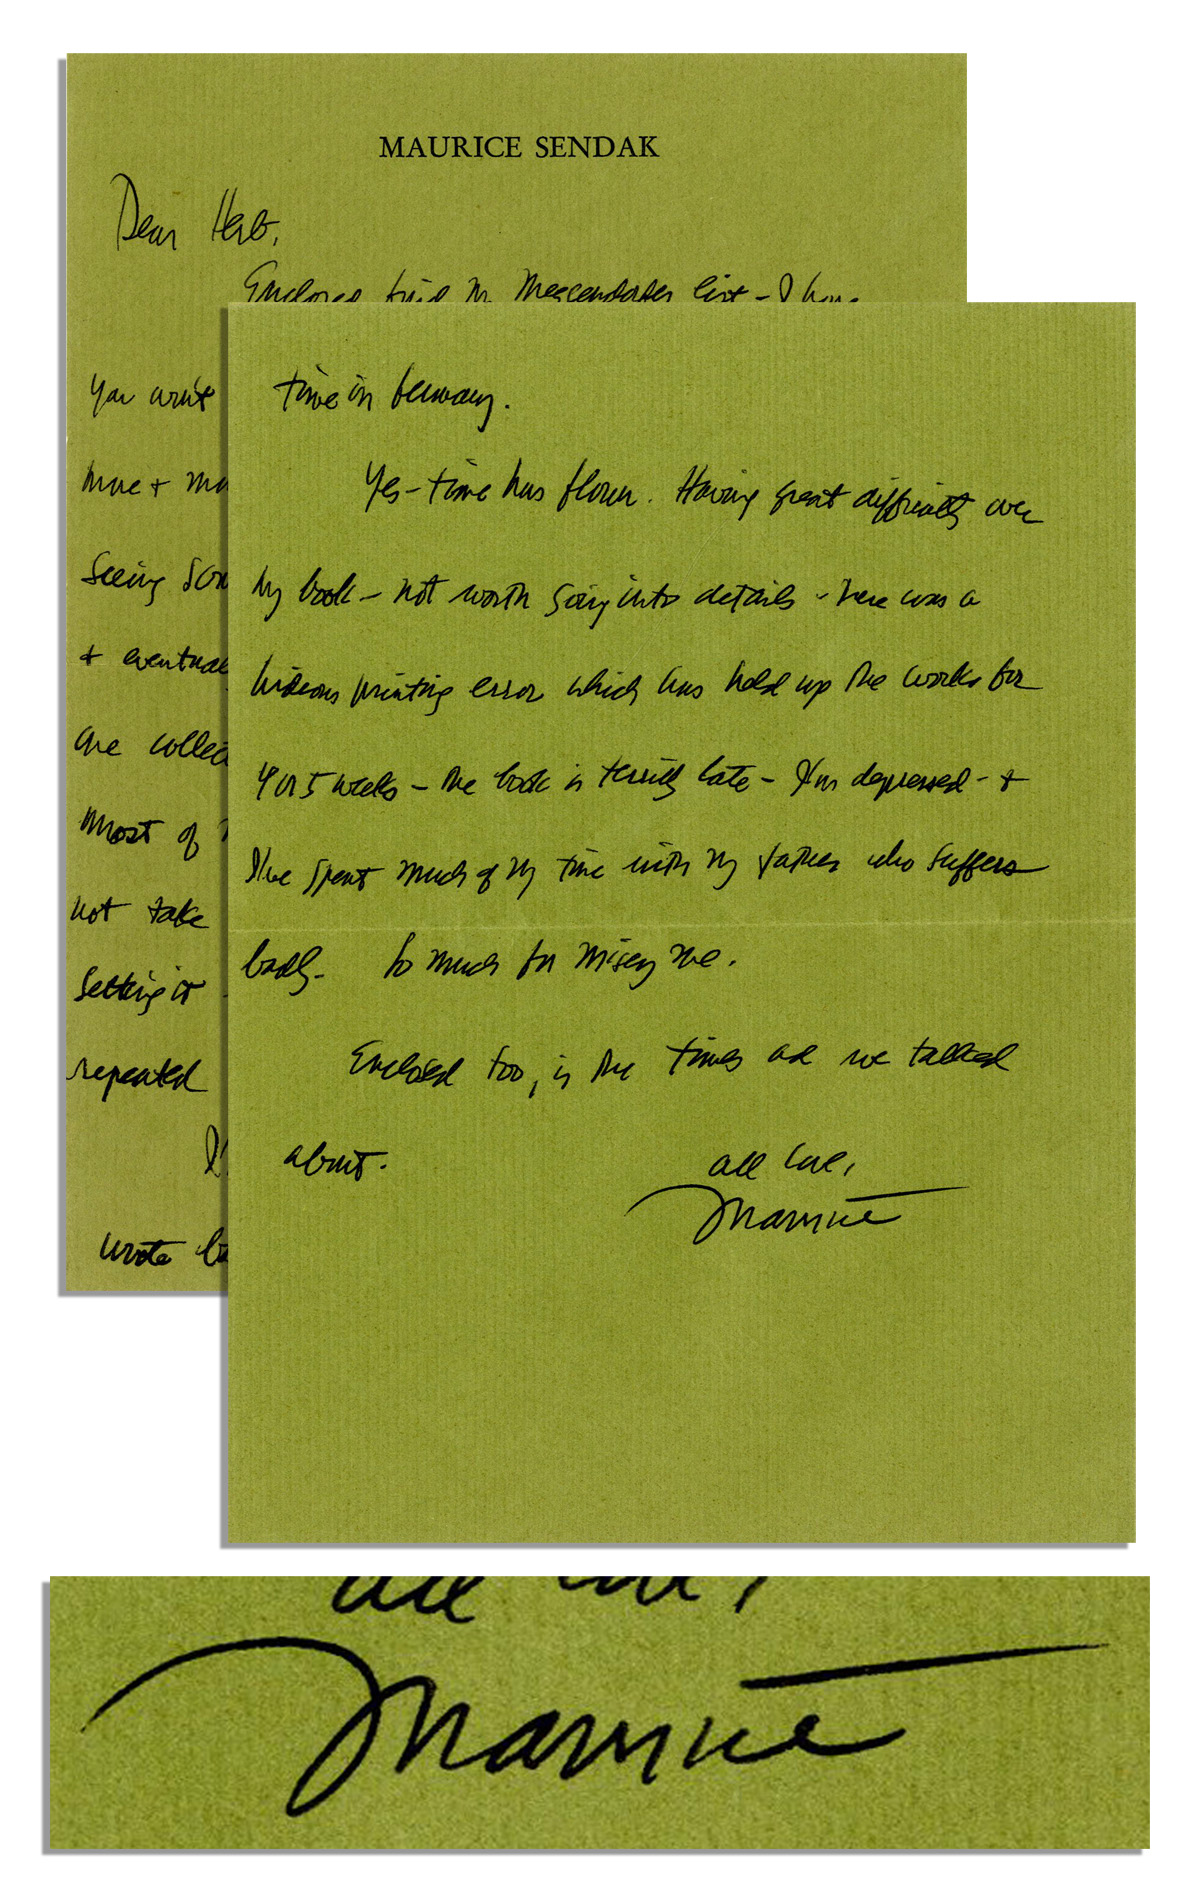 MAURICE SENDAK
Dear Herb,
Enclosed find list - I have
You won't
more +
Seeing
+
are
Most of
not take
Setting it
repeated
wrote
time in Germany.
Yes - time has flown. Having great difficulty over
my book - not worth going into details - there was a
hideous printing error which has held up the works for
4 or 5 weeks - the book is terribly late - I'm depressed - +
I've spent much of my time with my father who suffers
badly. So much for misery me.
Enclosed too, is the Times ad we talked
about.
all love,
Maurice
all love,
Maurice